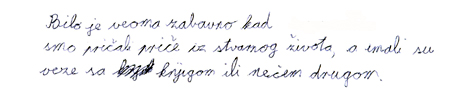 Bilo je veoma zabavno kad
smo pričali priče iz stvarnog života, a imali su
veze sa knjigom ili nečem drugom.